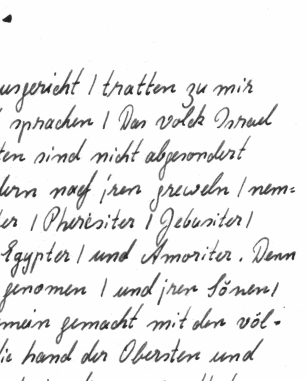 usgericht / tratten zu mir
sprachen / Das volck Israel
ten sind nicht abgesondert
dern nach jren greweln / nem=
ter / Pheresiter / Jebusiter /
Egypter / und Amoriter. Denn
genomen / und jren Sönen /
mein gemacht mit den völ-
die hand der Obersten und